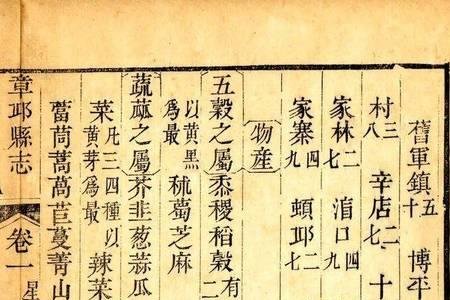 舊軍鎮五十 博平
村三八 辛店二七 十
家林二七 㳙口四九
家寨四九 頓丘二七
物産
五穀之屬黍稷稻穀有二
以黃黑爲最 秫蔔芝麻
蔬蓏之屬芥韭葱蒜瓜
菜凡三四種以黃芽爲最 辣菜
茼蒿萵苣蔓菁山
章丘縣志 卷一 星